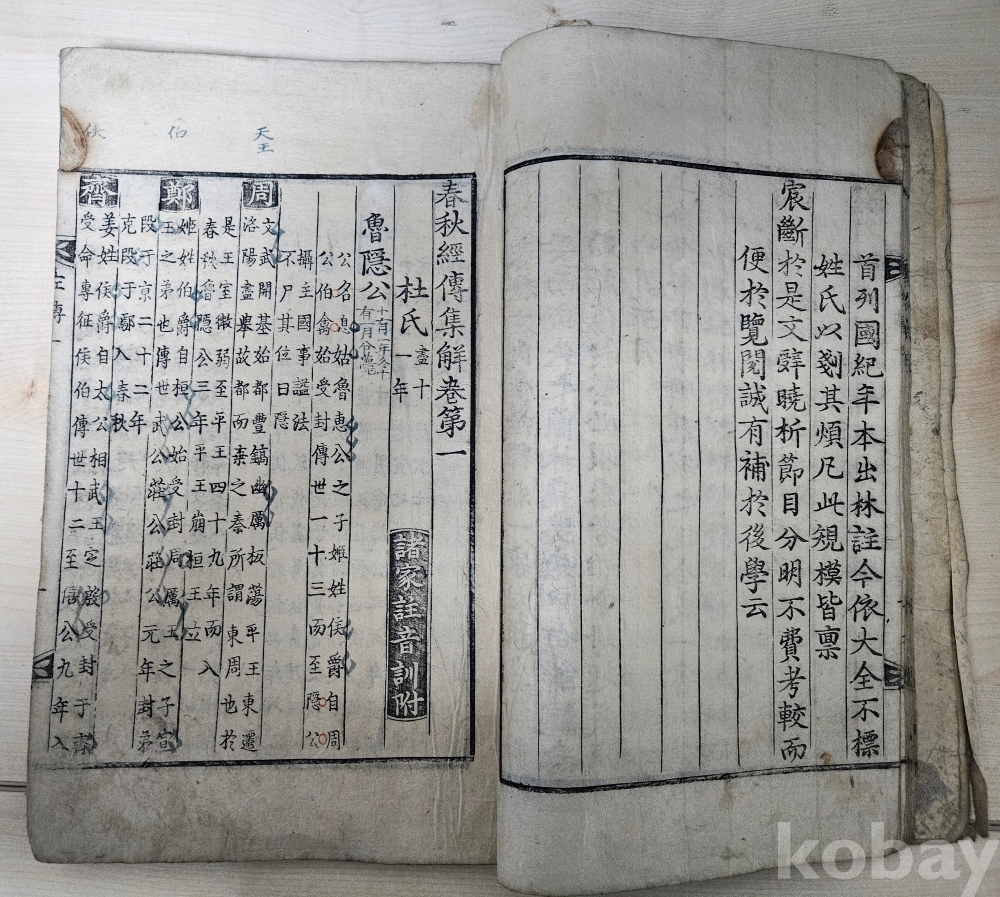 首列國紀年本出林註今依大全不標
姓氏以剗其煩凡此規模皆禀
宸斷於是文辭曉析節目分明不費考較而
便於覽閱誠有補於後學云
春秋經傳集解卷第一
杜氏 盡十一年 諸家註音訓附
魯隱公
公名息姑魯惠公之子姬姓侯爵自周
公伯禽始受封傳世一十三而至隱公
攝主國事謚法
不尸其位曰隱
天王
周
文武開基始都豐鎬幽厲板蕩平王東遷
洛陽盡舉故都而棄之秦所謂東周也於
是王室微弱至平王四十九年而入
春秋魯隱公三年平王崩桓王立
伯
鄭
姬姓伯爵自桓公始受封周厲王之子宣
王之弟也傳世武公莊公莊公元年封弟
段于京二十二年
克段于鄢入春秋
侯
齊
姜姓侯爵自太公相武王定殷受封于齊
受命專征侯伯傳世十二至僖公九年入
左傳一
kobay